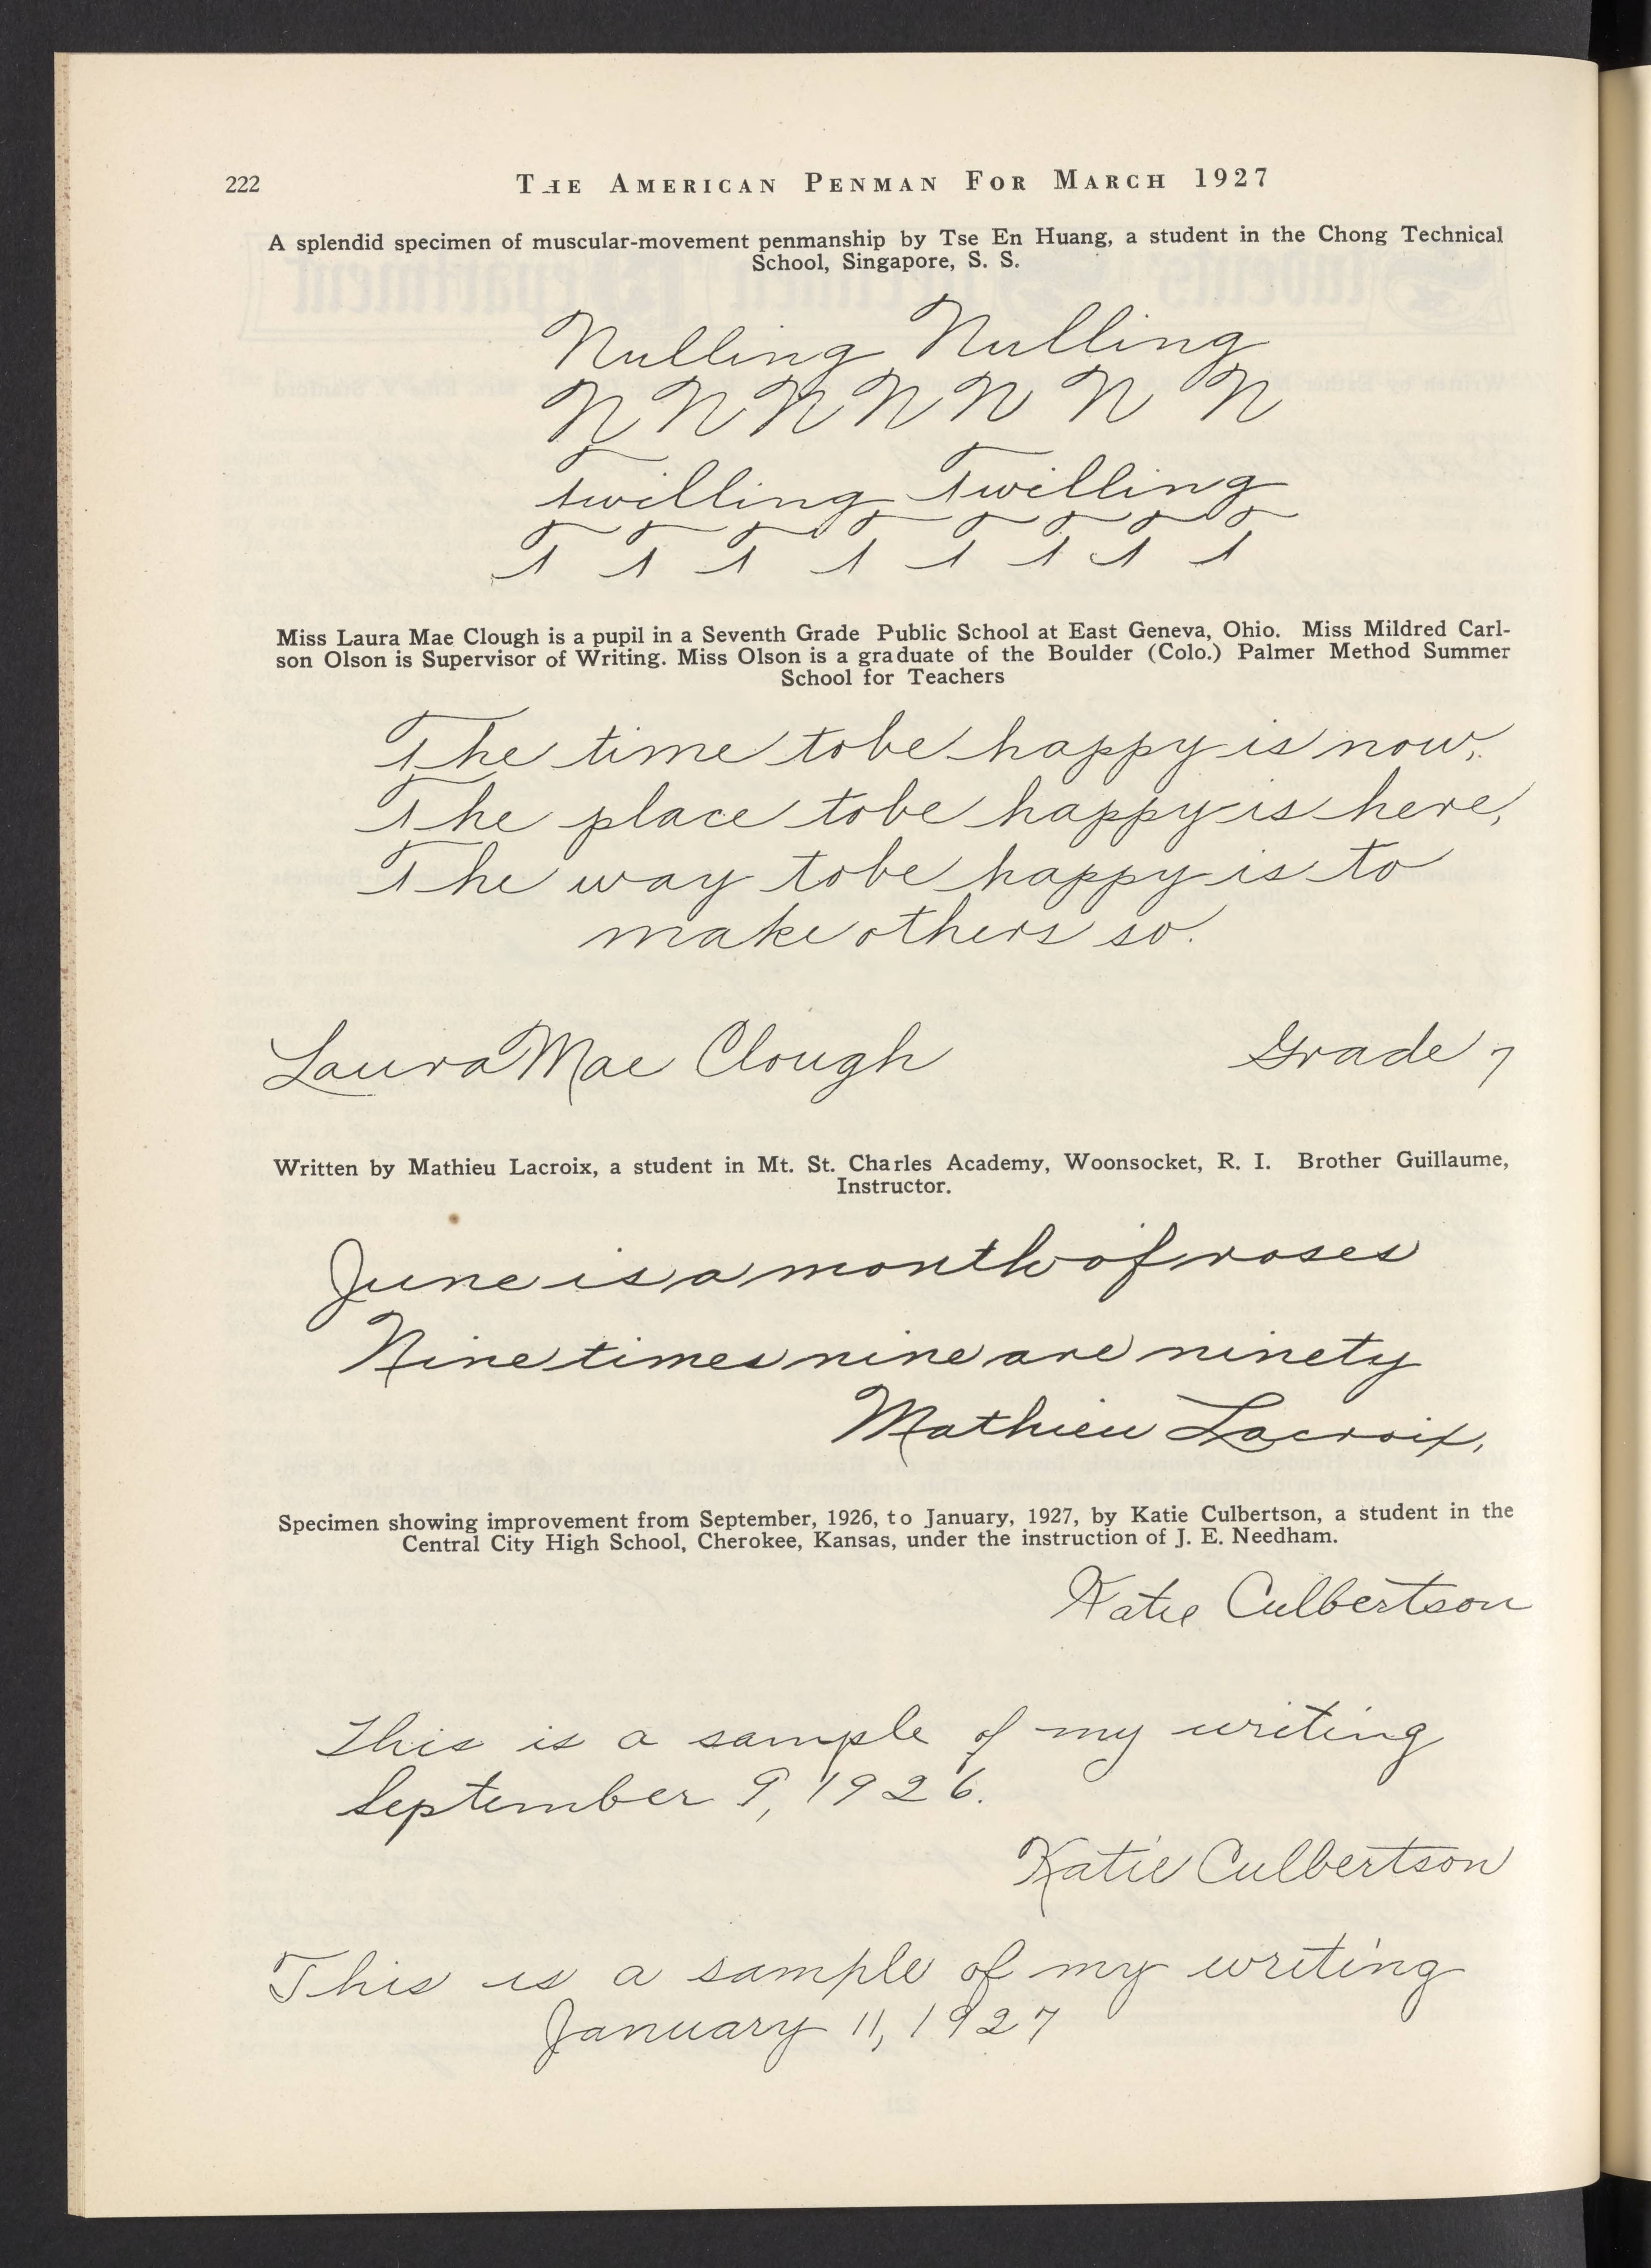 222
THE AMERICAN PENMAN FOR MARCH 1927
A splendid specimen of muscular-movement penmanship by Tse En Huang, a student in the Chong Technical
School, Singapore, S. S.
Nulling Nulling
N N N N N N N
Twilling Twilling
T T T T T T T T
Miss Laura Mae Clough is a pupil in a Seventh Grade Public School at East Geneva, Ohio. Miss Mildred Carl-
son Olson is Supervisor of Writing. Miss Olson is a graduate of the Boulder (Colo.) Palmer Method Summer
School for Teachers
The time to be happy is now,
The place to be happy is here,
The way to be happy is to
make others so.
Laura Mae Clough Grade 7
Written by Mathieu Lacroix, a student in Mt. St. Charles Academy, Woonsocket, R. I. Brother Guillaume,
Instructor.
June is a month of roses
Nine times nine are ninety
Mathieu Lacroix,
Specimen showing improvement from September, 1926, to January, 1927, by Katie Culbertson, a student in the
Central City High School, Cherokee, Kansas, under the instruction of J. E. Needham.
Katie Culbertson
This is a sample of my writing
September 9, 1926.
Katie Culbertson
This is a sample of my writing
January 11, 1927